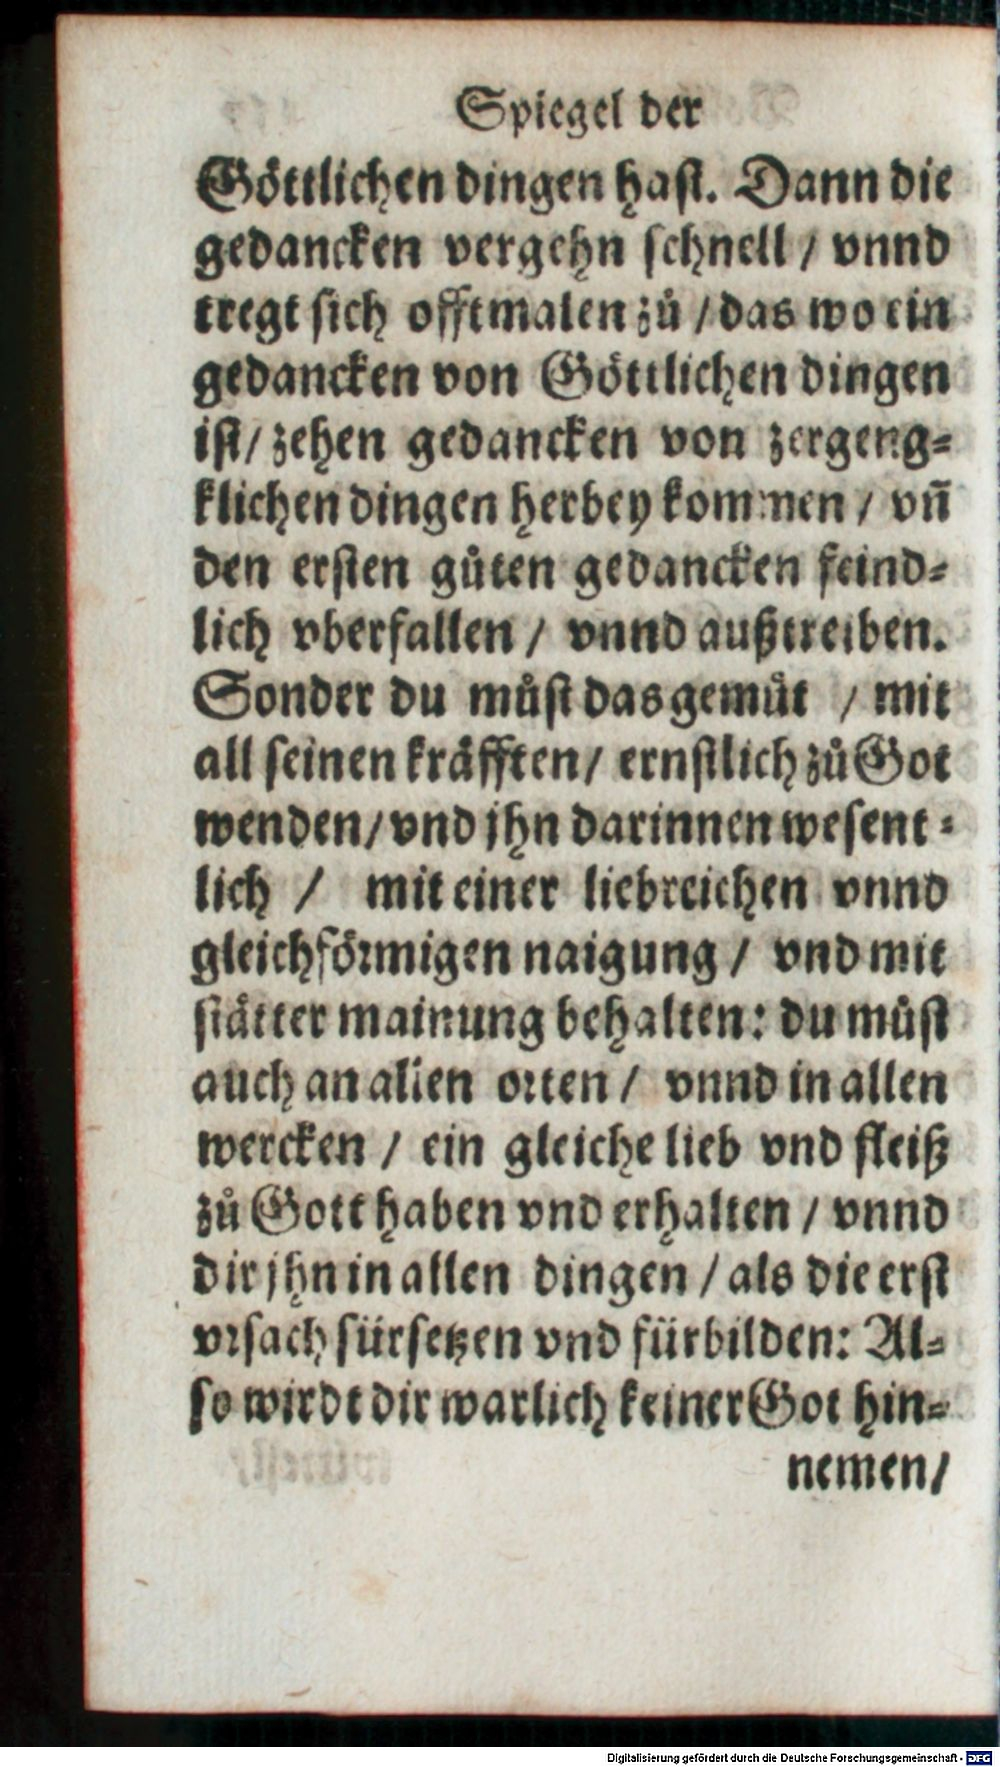 Spiegel der
Göttlichen dingen hast. Dann die
gedancken vergehn schnell / vnnd
tregt sich offtmalen zů / das wo ein
gedancken von Göttlichen dingen
ist / zehen gedancken von zergeng⸗
klichen dingen herbey kommen / vñ
den ersten gůten gedancken feind⸗
lich vberfallen / vnnd außtreiben.
Sonder du můst das gemüt / mit
all seinen kräfften / ernstlich zů Got
wenden / vnd jhn darinnen wesent⸗
lich / mit einer liebreichen vnnd
gleichförmigen naigung / vnd mit
stätter mainung behalten: du můst
auch an allen orten / vnnd in allen
wercken / ein gleiche lieb vnd fleiß
zů Gott haben vnd erhalten / vnnd
dir jhn in allen dingen / als die erst
vrsach fürsetzen vnd fürbilden: Al⸗
so wirdt dir warlich keiner Got hin⸗
nemen /
Digitalisierung gefördert durch die Deutsche Forschungsgemeinschaft - DFG